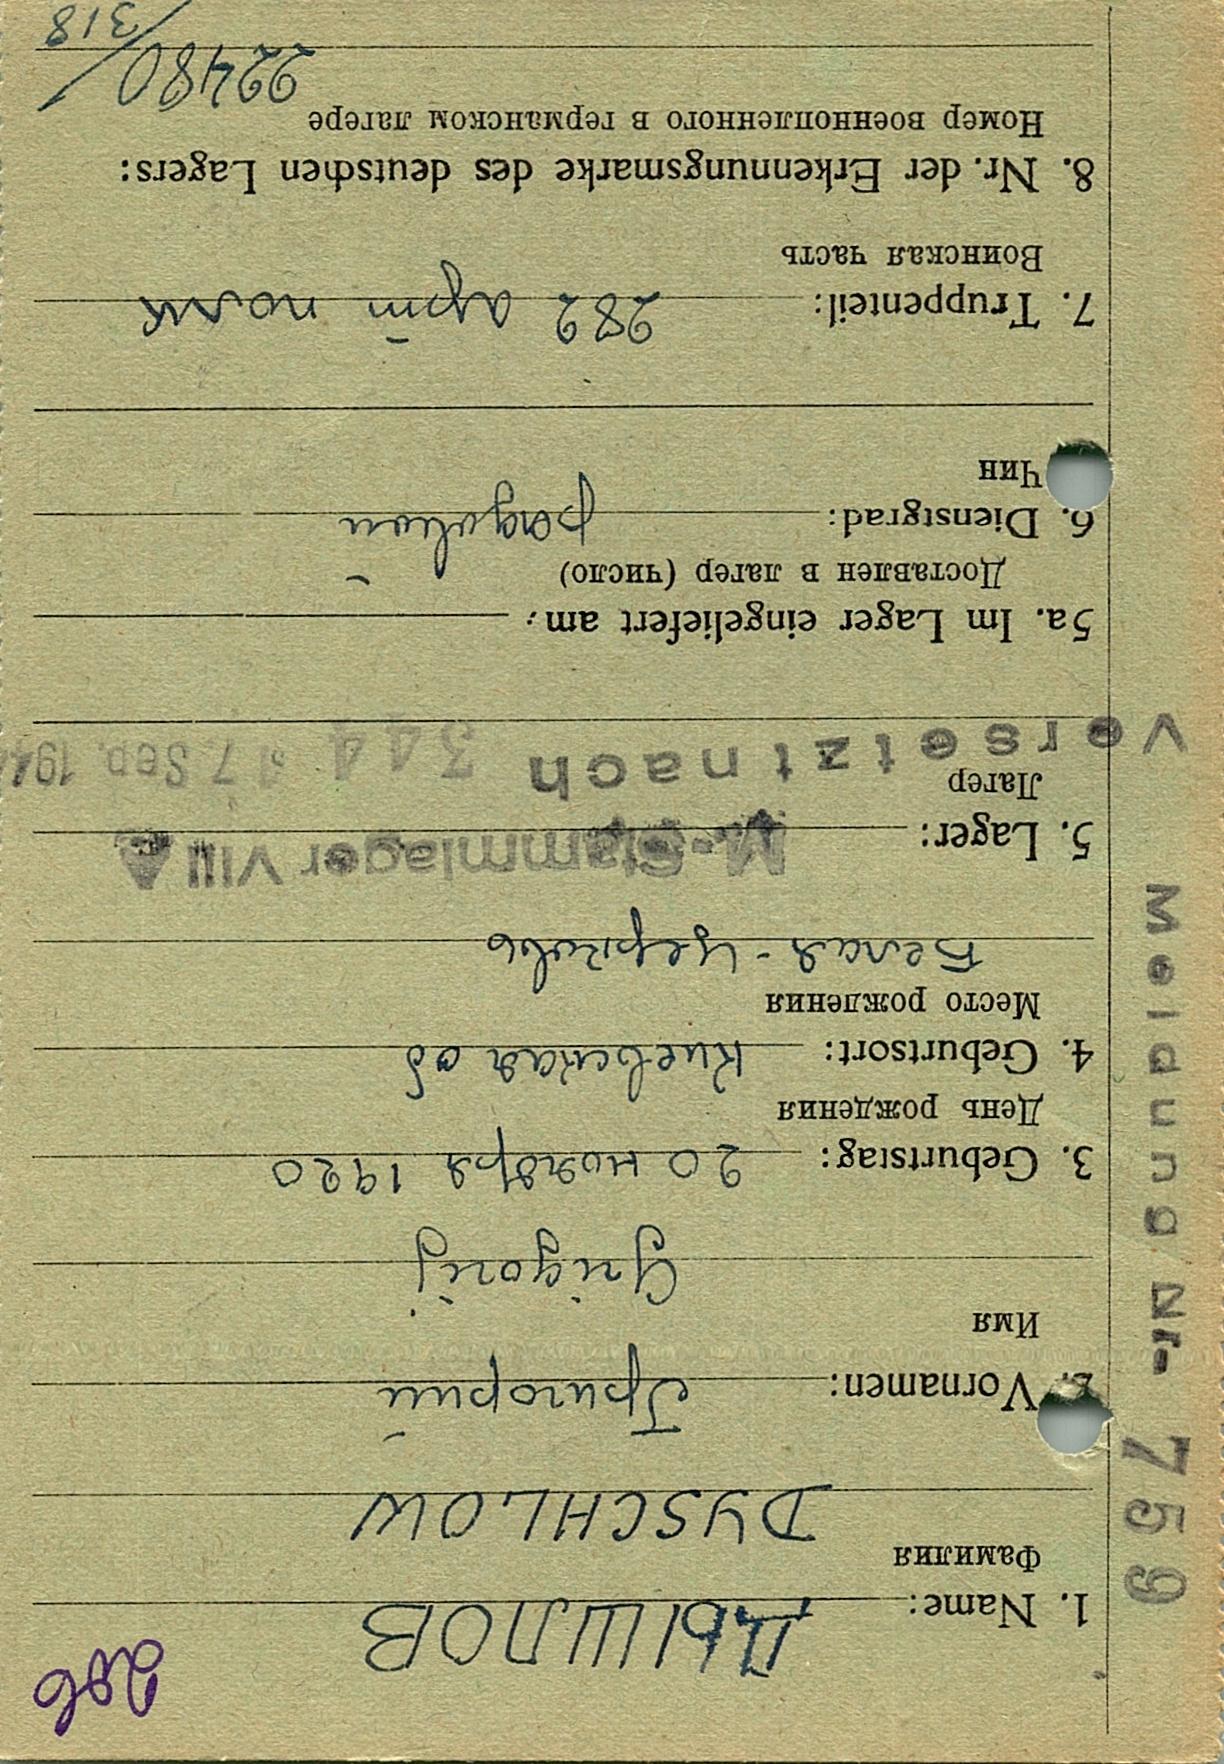 206
ДЫШЛОВ
1. Name:
Фамилия
DYSCHLOW
2. Vornamen: Григорий
Имя
Grigorij
3. Geburtstag: 20 ноября 1920
День рождения
4. Geburtsort: Киевская об
Место рождения
Белая-Церковь
M.-Stammlager VIII
5. Lager:
Лагер
versetzt nach 344 17. Sep. 194
5a. Im Lager eingeliefert am:
Доставлен в лагер (число)
6. Dienstgrad: рядовой
Чин
7. Truppenteil: 282 арт полк
Воинская часть
8. Nr. der Erkennungsmarke des deutschen Lagers:
Номер военнопленного в германском лагере
22480/
318
Meldung Nr- 759